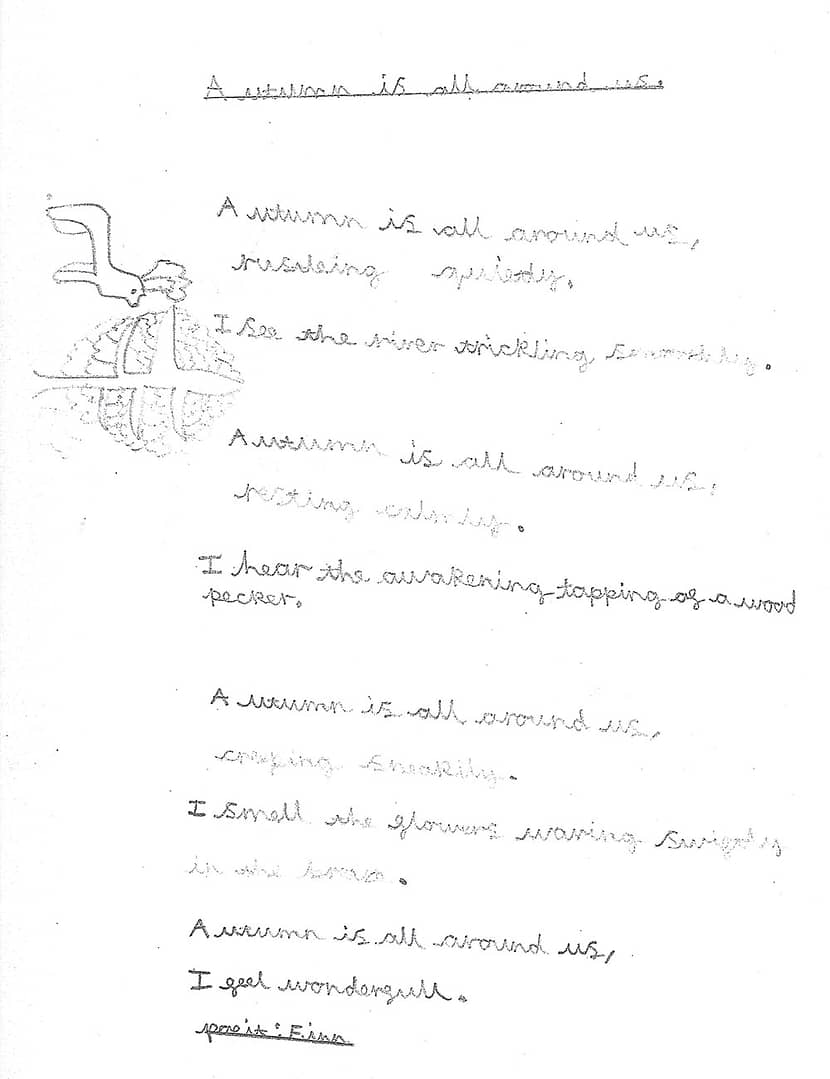 Autumn is all around us.
Autumn is all around us,
rusteling quietly.
I see the river trickling smoothly.
Autumn is all around us,
resting calmly.
I hear the awakening tapping of a wood
pecker.
Autumn is all around us,
creping sneakily.
I smell the flowers waving swiftly
in the
Autumn is all around us,
I feel wonderfull.
poeit: Finn